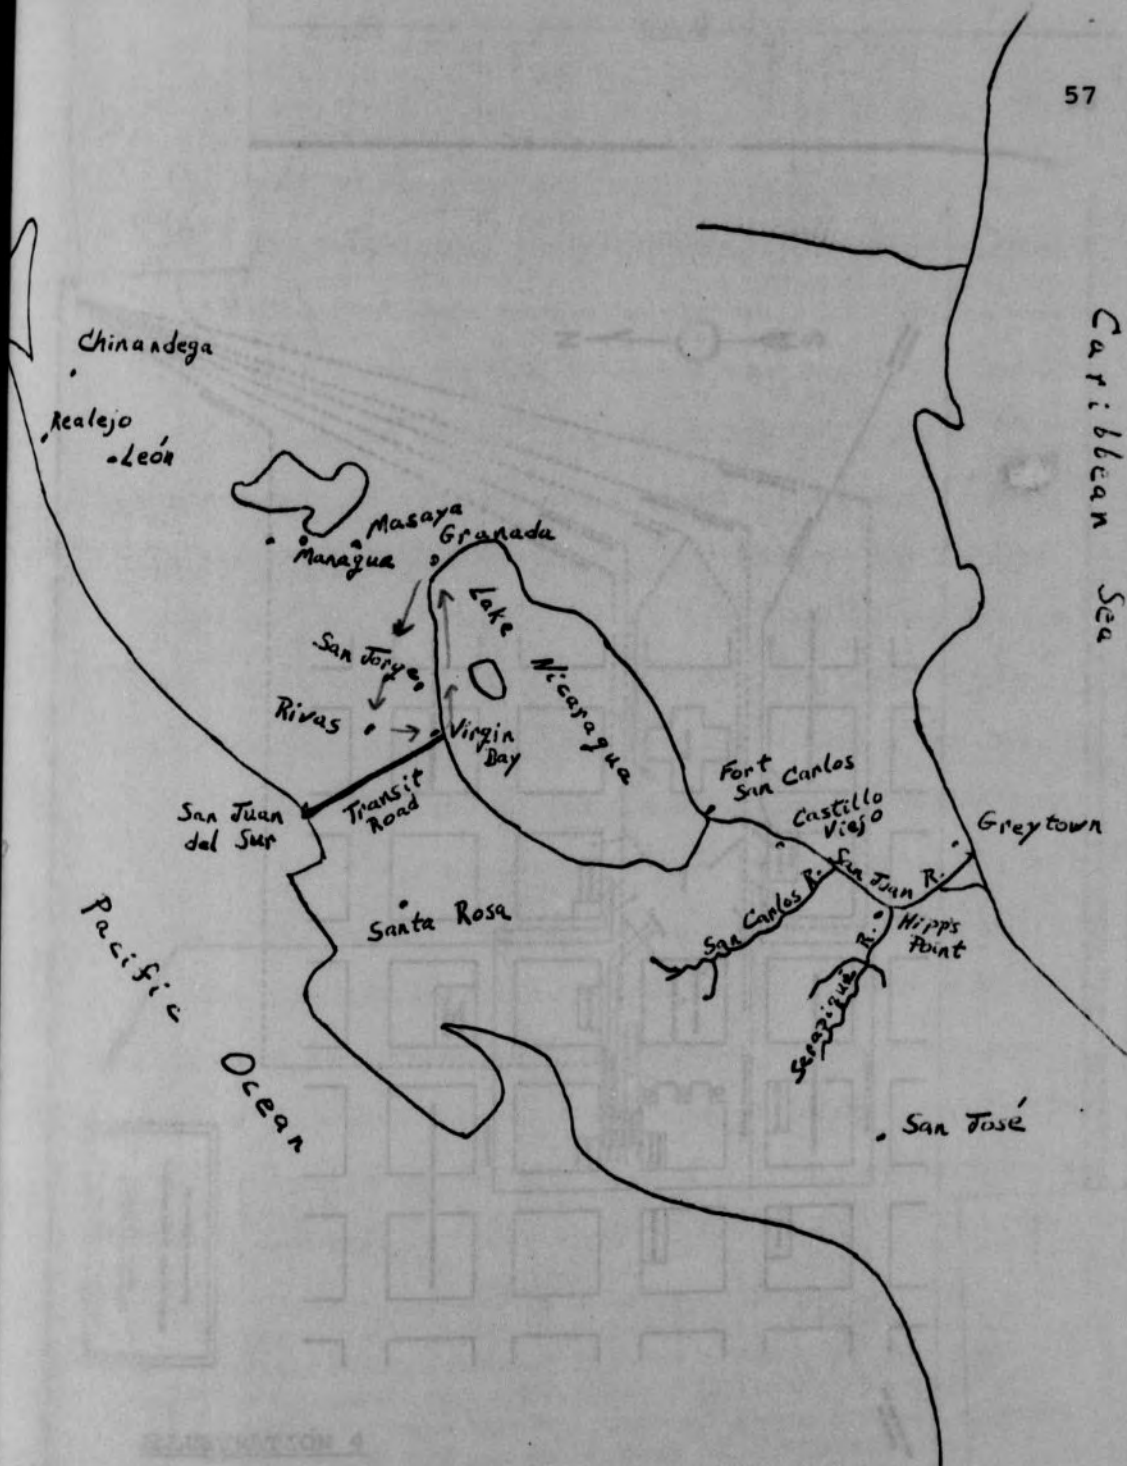 57
Caribbean Sea
Chinandega
Realejo
León
Masaya
Granada
Managua
Lake Nicaragua
San Jorge
Rivas
Virgin
Bay
Transit
Road
San Juan
del Sur
Fort
San Carlos
Castillo
Viejo
Greytown
San Juan R.
San Carlos R.
Hipp's
Point
Serapiqui R.
Santa Rosa
Pacific Ocean
San José